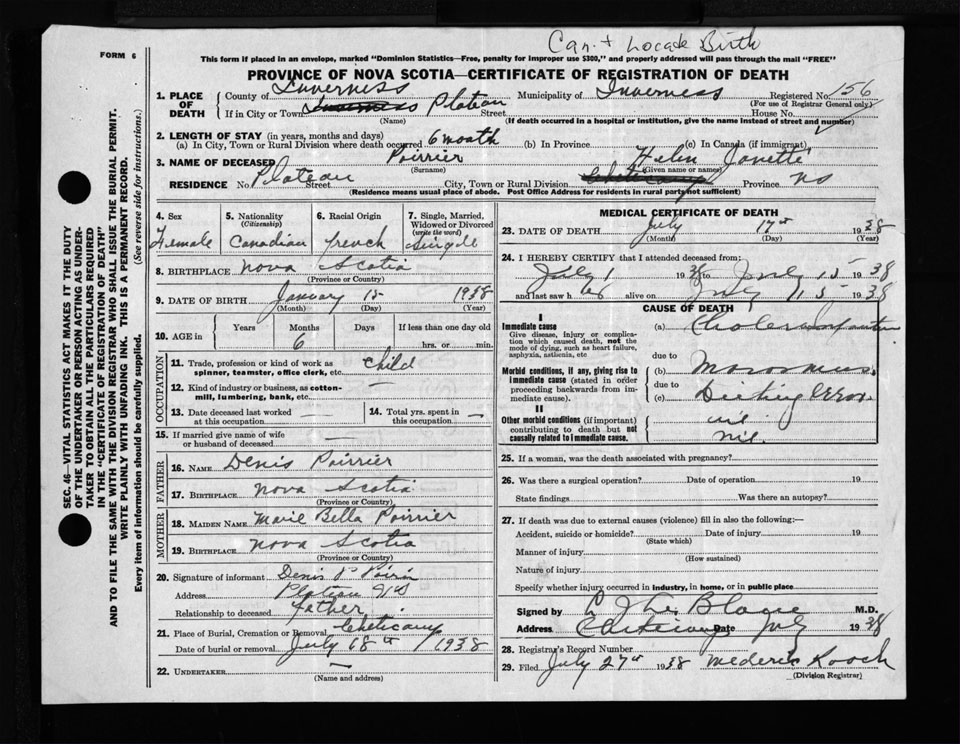 Can't Locate Birth
FORM 6
This form if placed in an envelope, marked "Dominion Statistics—Free, penalty for improper use $300," and properly addressed will pass through the mail "FREE"
PROVINCE OF NOVA SCOTIA—CERTIFICATE OF REGISTRATION OF DEATH
1. PLACE OF DEATH County of Inverness Municipality of Inverness Registered No. 156
(For use of Registrar General only)
If in City or Town Inverness Plateau Street House No.
(Name) (If death occurred in a hospital or institution, give the name instead of street and number)
2. LENGTH OF STAY (in years, months and days)
(a) In City, Town or Rural Division where death occurred 6 month (b) In Province (c) In Canada (if immigrant)
3. NAME OF DECEASED Poirrier Helen Janette
(Surname) (Given name or names)
RESIDENCE No. Plateau Street City, Town or Rural Division Cheticamp Province NS
(Residence means usual place of abode. Post Office Address for residents in rural parts not sufficient)
4. Sex Female
5. Nationality (Citizenship) Canadian
6. Racial Origin French
7. Single, Married, Widowed or Divorced (write the word) Single
8. BIRTHPLACE Nova Scotia
(Province or Country)
9. DATE OF BIRTH January 15 1938
(Month) (Day) (Year)
10. AGE in Years Months 6 Days If less than one day old hrs. or min.
OCCUPATION
11. Trade, profession or kind of work as spinner, teamster, office clerk, etc. child
12. Kind of industry or business, as cotton-mill, lumbering, bank, etc. —
13. Date deceased last worked at this occupation —
14. Total yrs. spent in this occupation —
15. If married give name of wife or husband of deceased —
FATHER
16. NAME Denis Poirrier
17. BIRTHPLACE Nova Scotia
(Province or Country)
MOTHER
18. MAIDEN NAME Marie Bella Poirrier
19. BIRTHPLACE Nova Scotia
(Province or Country)
20. Signature of informant Denis P
Address Plateau NS
Relationship to deceased Father
21. Place of Burial, Cremation or Removal Cheticamp
Date of burial or removal July 1938
22. UNDERTAKER —
(Name and address)
MEDICAL CERTIFICATE OF DEATH
23. DATE OF DEATH July 17th 1938
(Month) (Day) (Year)
24. I HEREBY CERTIFY that I attended deceased from:
July 1 1938 to July 15 1938
and last saw her alive on July 15 1938
CAUSE OF DEATH
I
Immediate cause
Give disease, injury or complication which caused death, not the mode of dying, such as heart failure, asphyxia, asthenia, etc
(a) Cholera Infantum
due to
Morbid conditions, if any, giving rise to immediate cause (stated in order proceeding backwards from immediate cause).
(b) Marasmus
due to
(c) Dieting Error
II
Other morbid conditions (if important) contributing to death but not causally related to immediate cause.
nil
nil.
25. If a woman, was the death associated with pregnancy?
26. Was there a surgical operation? Date of operation 19
State findings Was there an autopsy?
27. If death was due to external causes (violence) fill in also the following:—
Accident, suicide or homicide? Date of injury 19
(State which)
Manner of injury
(How sustained)
Nature of injury
Specify whether injury occurred in industry, in home, or in public place
Signed by M.D.
Address Cheticamp Date July 1938
28. Registrar's Record Number
29. Filed July 27th 1938 Mederic Roach
(Division Registrar)
SEC. 46—VITAL STATISTICS ACT MAKES IT THE DUTY
OF THE UNDERTAKER OR PERSON ACTING AS UNDERTAKER TO OBTAIN ALL THE PARTICULARS REQUIRED
IN THE "CERTIFICATE OF REGISTRATION OF DEATH"
AND TO FILE THE SAME WITH THE DIVISION REGISTRAR WHO SHALL ISSUE THE BURIAL PERMIT.
WRITE PLAINLY WITH UNFADING INK. THIS IS A PERMANENT RECORD.
Every item of information should be carefully supplied. (See reverse side for instructions.)